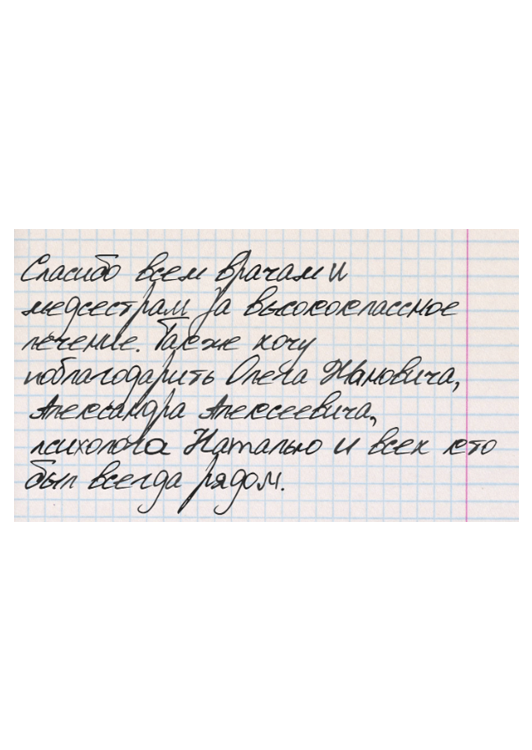 Спасибо всем врачам и
медсестрам за высококлассное
лечение. Также хочу
поблагодарить Олега
Александра Алексеевича,
психолога Наталью и всех кто
был всегда рядом.